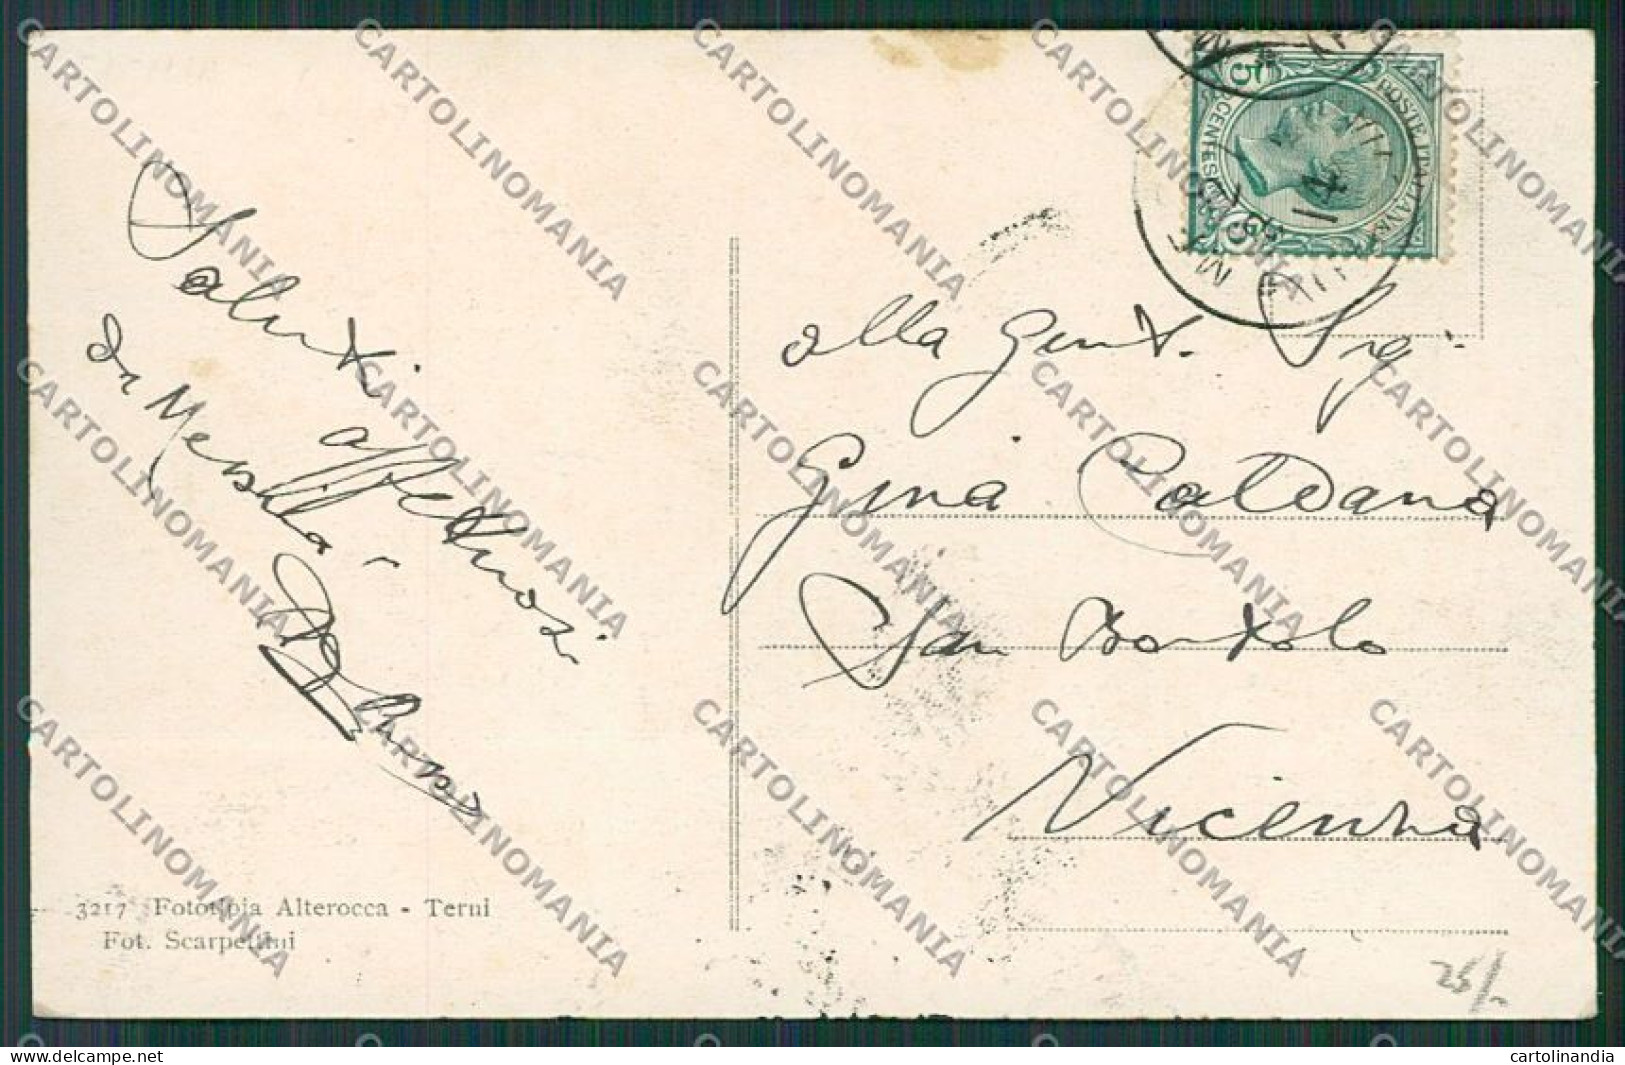 Saluti
affettuosi
da Mevshha
alla Gent. Sig.
Gina Caldana
San Bortolo
Vicenza
POSTE ITALIANE
CENTESIMI
5
5
14
3217 Fototipia Alterocca - Terni
Fot. Scarpettini
25/-
CARTOLINOMANIA
cartolinandia